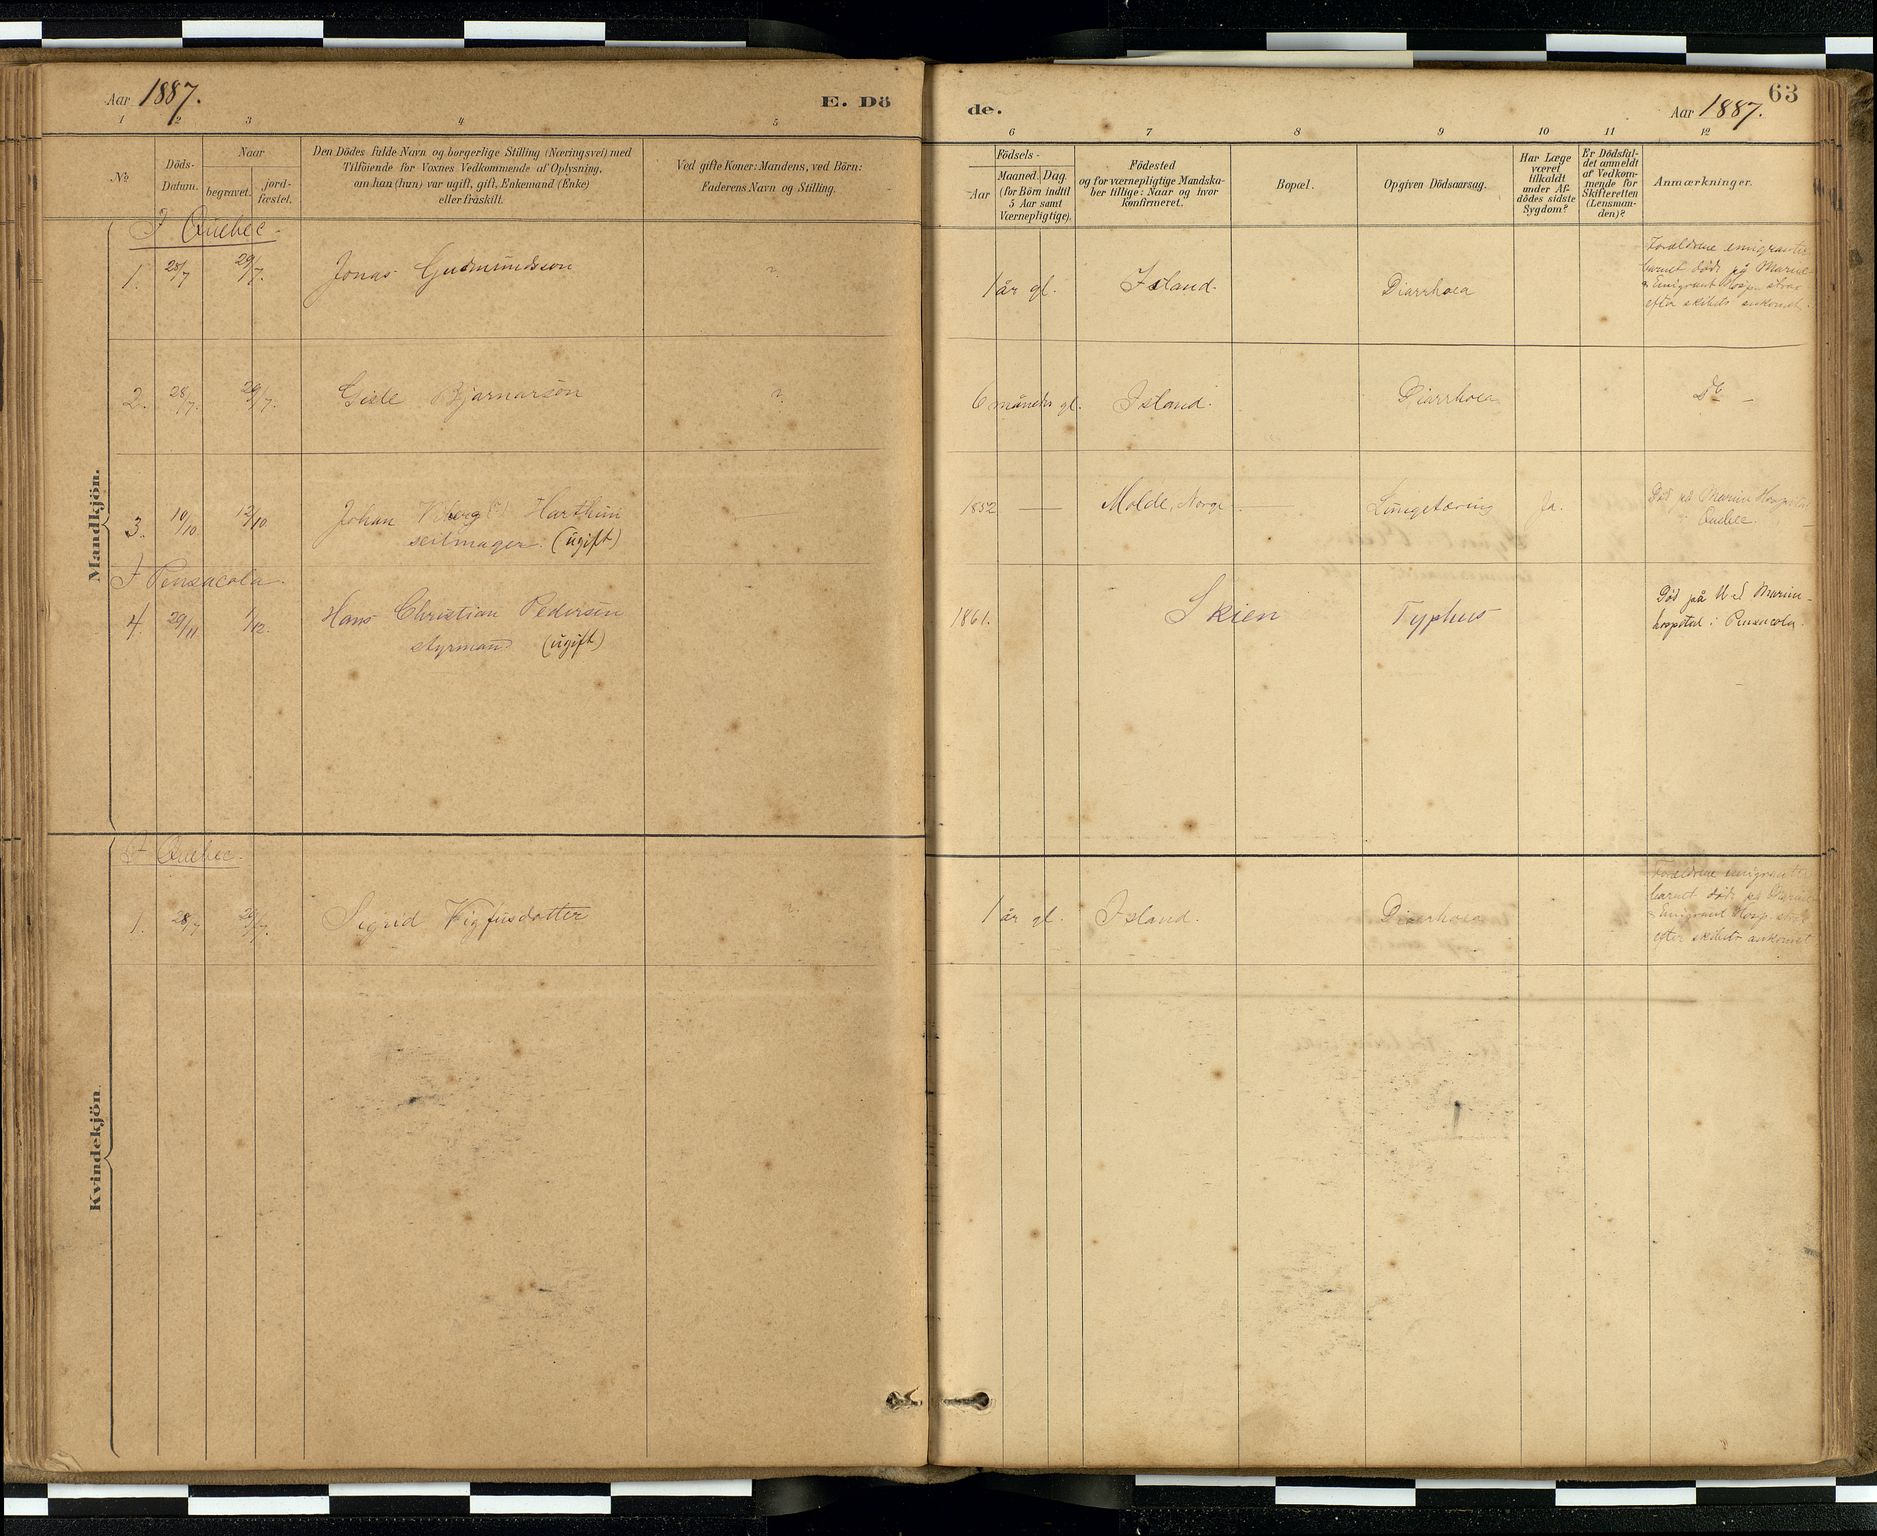 Aar 1887.
E. Dö
1 2 3 4 5
No
Döds-Datum.
Naar
begravet. jord-fæstet.
Den Dödes fulde Navn og borgerlige Stilling (Næringsvei) med
Tilföiende for Voxnes Vedkommende af Oplysning,
om han (hun) var ugift, gift, Enkemand (Enke)
eller fraskilt.
Ved gifte Koner: Mandens, ved Börn:
Faderens Navn og Stilling.
Mandkjön.
I Quebec.
1. 28/7 29/7. Jonas Gudmundsson ?
2. 28/7. 29/7. Gisle Bjarnarson ?
3. 10/10. 12/10 Johan
seilmager. (ugift)
I Pensacola.
4. 29/11. 1/12. Hans Christian Pedersen
styrmand (ugift)
Kvindekjön.
I Quebec.
1. 28/7 29/7. Sigrid Vigfusdatter ?
de.
63
Aar 1887.
6 7 8 9 10 11 12
Födsels-
Aar
Maaned. Dag.
(for Börn indtil
5 Aar samt
Værnepligtige).
Födested
og for værnepligtige Mandska-
ber tillige: Naar og hvor
konfirmeret.
Bopæl.
Opgiven Dödsaarsag.
Har Læge
været
tilkaldt
under Af-
dödes sidste
Sygdom?
Er Dödsfal-
det anmeldt
af Vedkom-
mende for
Skifteretten
(Lensman-
den)?
Anmærkninger.
1 år gl. Island. Diarrhoea
Forældrene emigranter
barnet døde på Marine
& Emigrant Hosp. strax
efter skibets ankomst.
6 måneder gl. Island. Diarrhoea do —
1852 — Molde, Norge — Lungetæring Ja.
Død på Marine Hospital
i Quebec.
1861. Skien Typhus
Død på Marine-
hospital i Pensacola.
1 år gl. Island. Diarrhoea
Forældrene emigranter
barnet døde på Marine
& Emigrant Hosp. strax
efter skibets ankomst